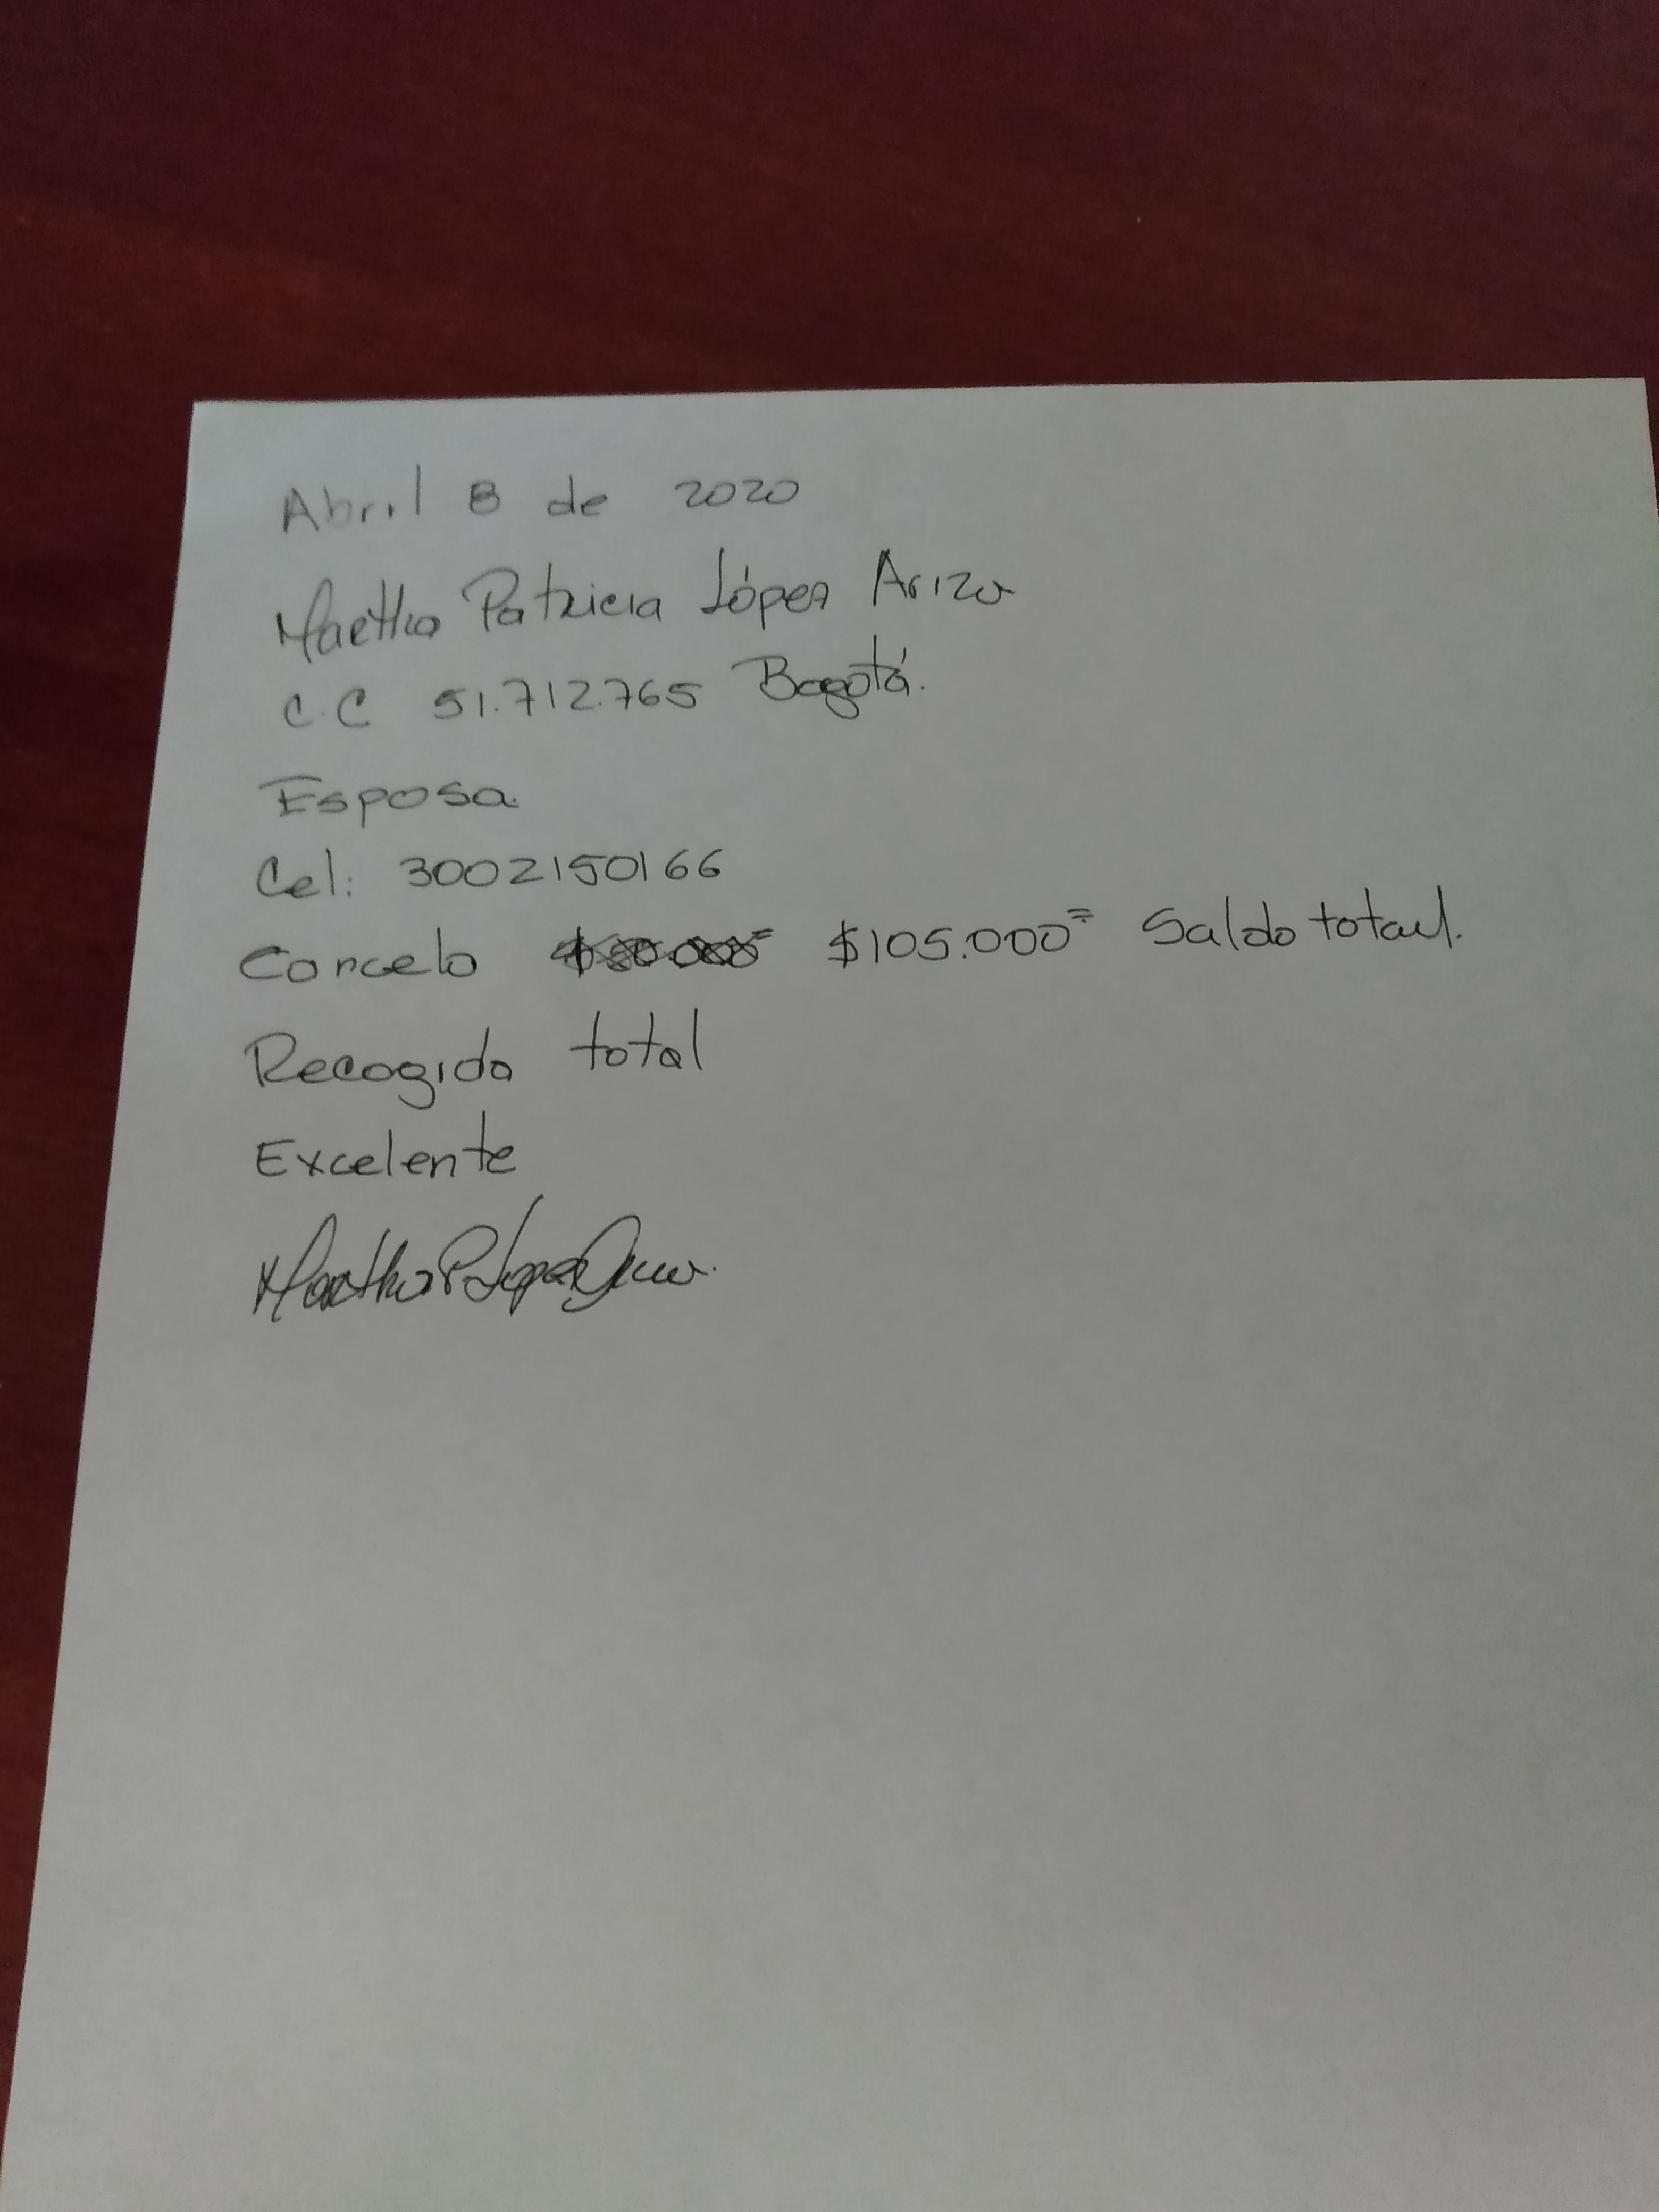 Abril 8 de 2020
Martha Patricia López Ariza
C.C 51.712.765 Bogotá.
Esposa.
Cel: 3002150166
Cancelo $105.000= Saldo total.
Recogida total
Excelente
Martha P. López Ariza.